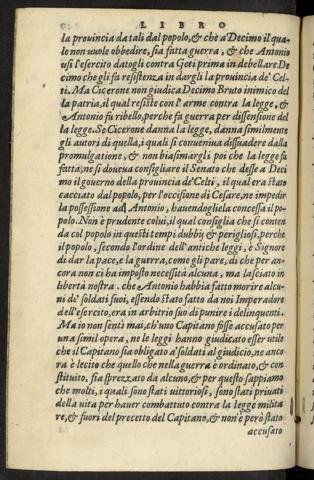 LIBRO
la prouincia da tali dal popolo, & che a Decimo il qua-
le non vuole obbedire, sia fatta guerra, & che Antonio
usi l'esercito datogli contra Geti prima in debellare De
cimo che gli fa resistenza in dargli la prouincia de' Cel-
ti. Ma Cicerone non giudica Decimo Bruto inimico del
la patria, il qual resiste con l'arme contra la legge, &
Antonio fu ribello, perche fa guerra per dissensione del
la legge. Se Cicerone danna la legge, danna similmente
gli autori di quella, i quali si conueniua dissuadere dalla
promulgatione, & non biasimargli poi che la legge fu
fatta; ne si doueua consigliare il Senato che desse a Deci
mo il gouerno della prouincia de' Celti, il qual era stato
cacciato dal popolo, per l'occisione di Cesare, ne impedir
la possessione ad Antonio, hauendogliela concessa il po-
polo. Non è prudente colui, il qual consiglia che si conten
da col popolo in questi tempi dubbij & perigliosi, perche
il popolo, secondo l'ordine dell'antiche leggi, è Signore
di dar la pace, e la guerra, come gli pare, di che per an-
cora non ci ha imposto necessità alcuna, ma lasciato in
libertà nostra. che Antonio habbia fatto morire alcu-
ni de' soldati suoi, essendo stato fatto da noi Imperadore
dell'esercito, era in arbitrio suo di punire i delinquenti.
Ma io non senti mai, ch'uno Capitano fosse accusato per
una simil opera, ne le leggi hanno giudicato esser utile
che il Capitano sia obligato a' soldati al giudicio, ne anco
ra è lecito che quello che nella guerra è ordinato, & con
stituito, sia sprezzato da alcuno, & per questo sappiamo
che molti, i quali sono stati vittoriosi, sono stati priuati
della vita per hauer combattuto contra la legge milita
re, & fuori del precetto del Capitano, & non è però stato
accusato